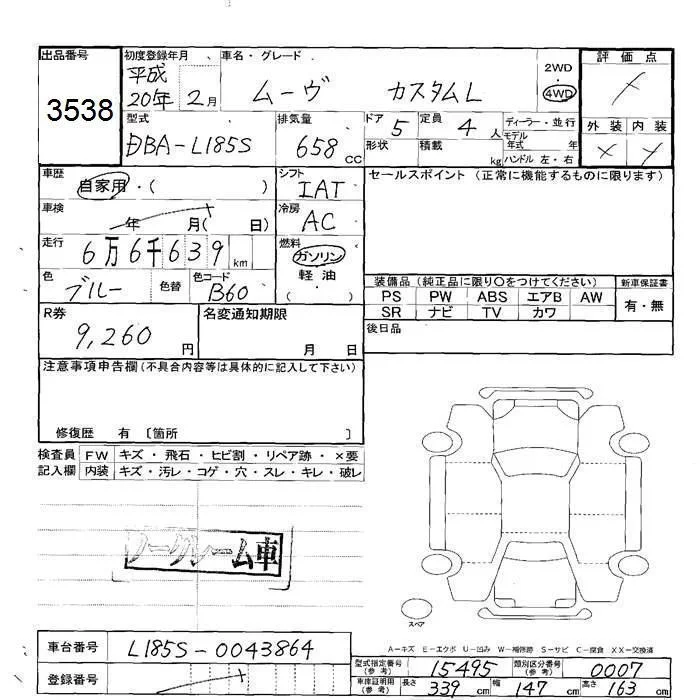 出品番号 初度登録年月 車名・グレード 評価点
3538 平成20年2月 ムーヴ カスタムL 2WD 4WD
型式 排気量 ドア 定員 ディーラー・並行 外装 内装
DBA-L185S 658cc 5 4人 モデル年式 年
形状 積載 kg ハンドル 左・右
車歴 シフト セールスポイント(正常に機能するものに限ります)
自家用・( ) IAT
車検 冷房
年 月( 日) AC
走行 燃料
6万6千639km ガソリン
色 色コード 軽油
ブルー 色替 B60 ( )
装備品(純正品に限り○をつけてください) 新車保証書
PS PW ABS エアB AW 有・無
SR ナビ TV カワ
R券 名変通知期限 後日品
9,260円 月 日
注意事項申告欄(不具合内容等は具体的に記入して下さい)
修復歴 有 〔箇所 〕
検査員 FW キズ・飛石・ヒビ割・リペア跡・×要
記入欄 内装 キズ・汚レ・コゲ・穴・スレ・キレ・破レ
ノークレーム車
スペア
A=キズ E=エクボ U=凹み W=補修跡 S=サビ C=腐食 XX=交換済
車台番号 L185S-0043864
型式指定番号(参考) 15495 類別区分番号(参考) 0007
登録番号
車庫証明用(参考) 長さ 339cm 幅 147cm 高さ 163cm